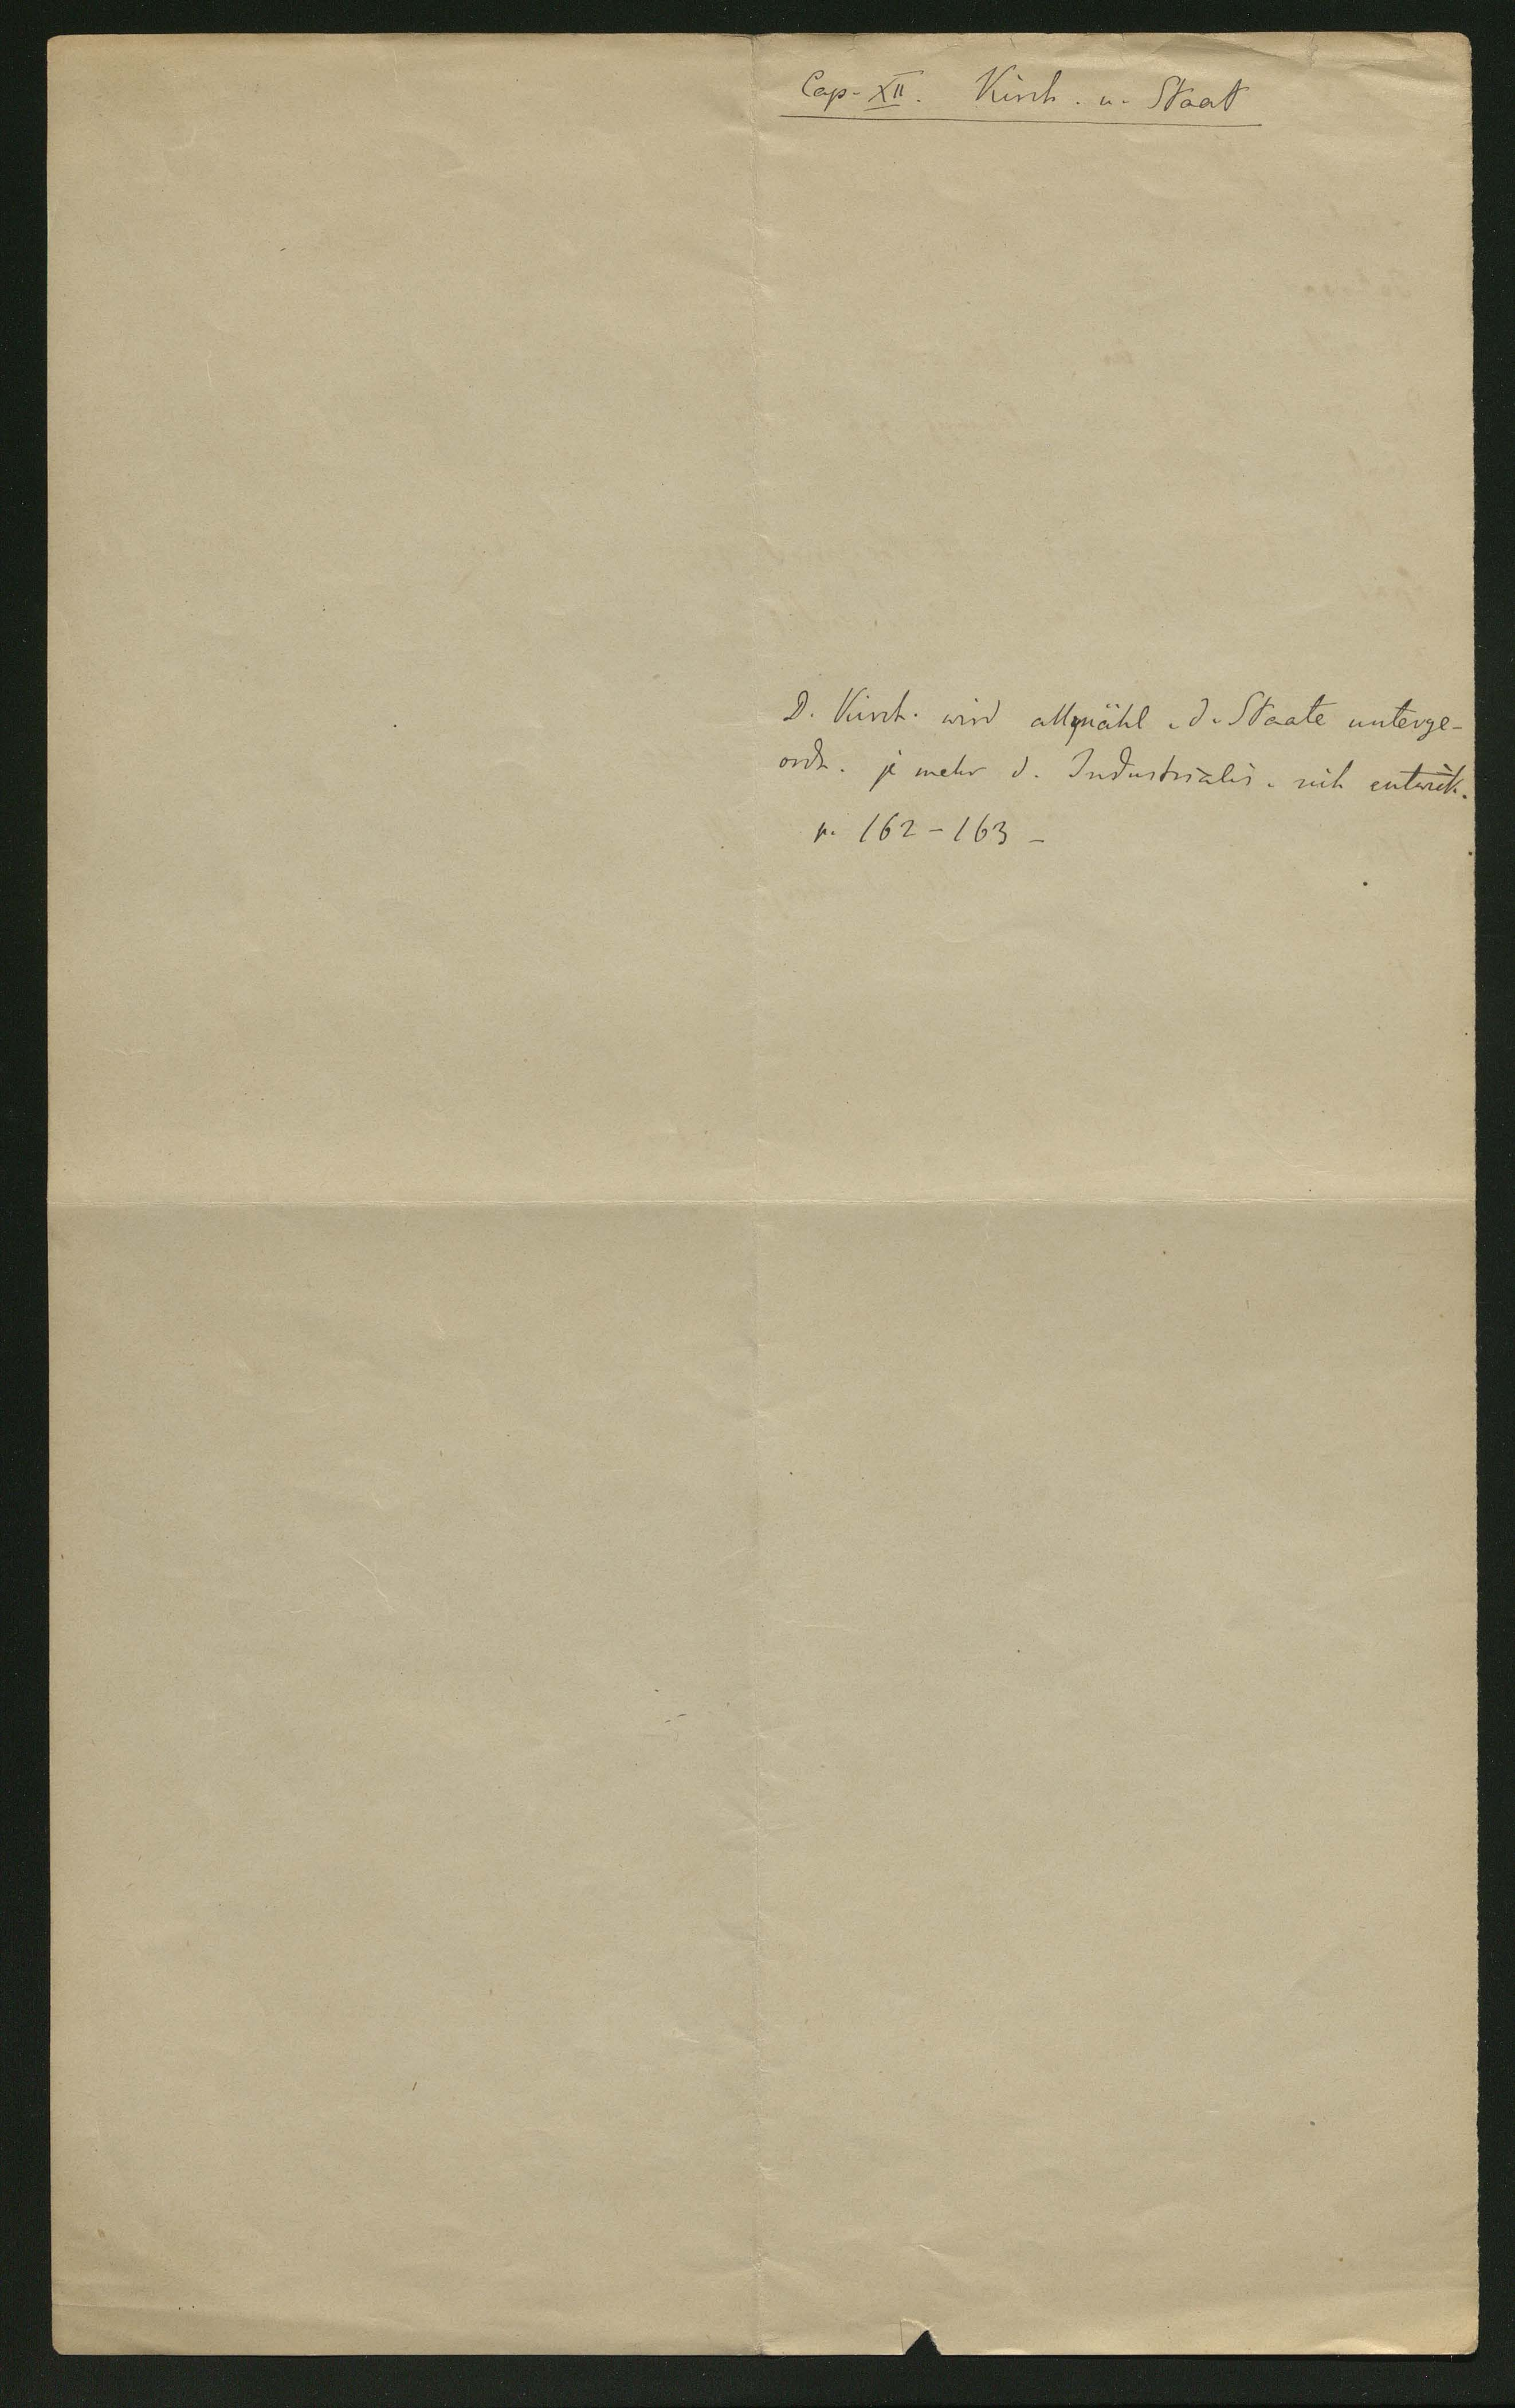 Cap. XII. Kirch. u. Staat
D. Kirch. wird allmähl. d. Staate unterge-
ordn. je mehr d. Industrialis. sich entwick.
p. 162-163-